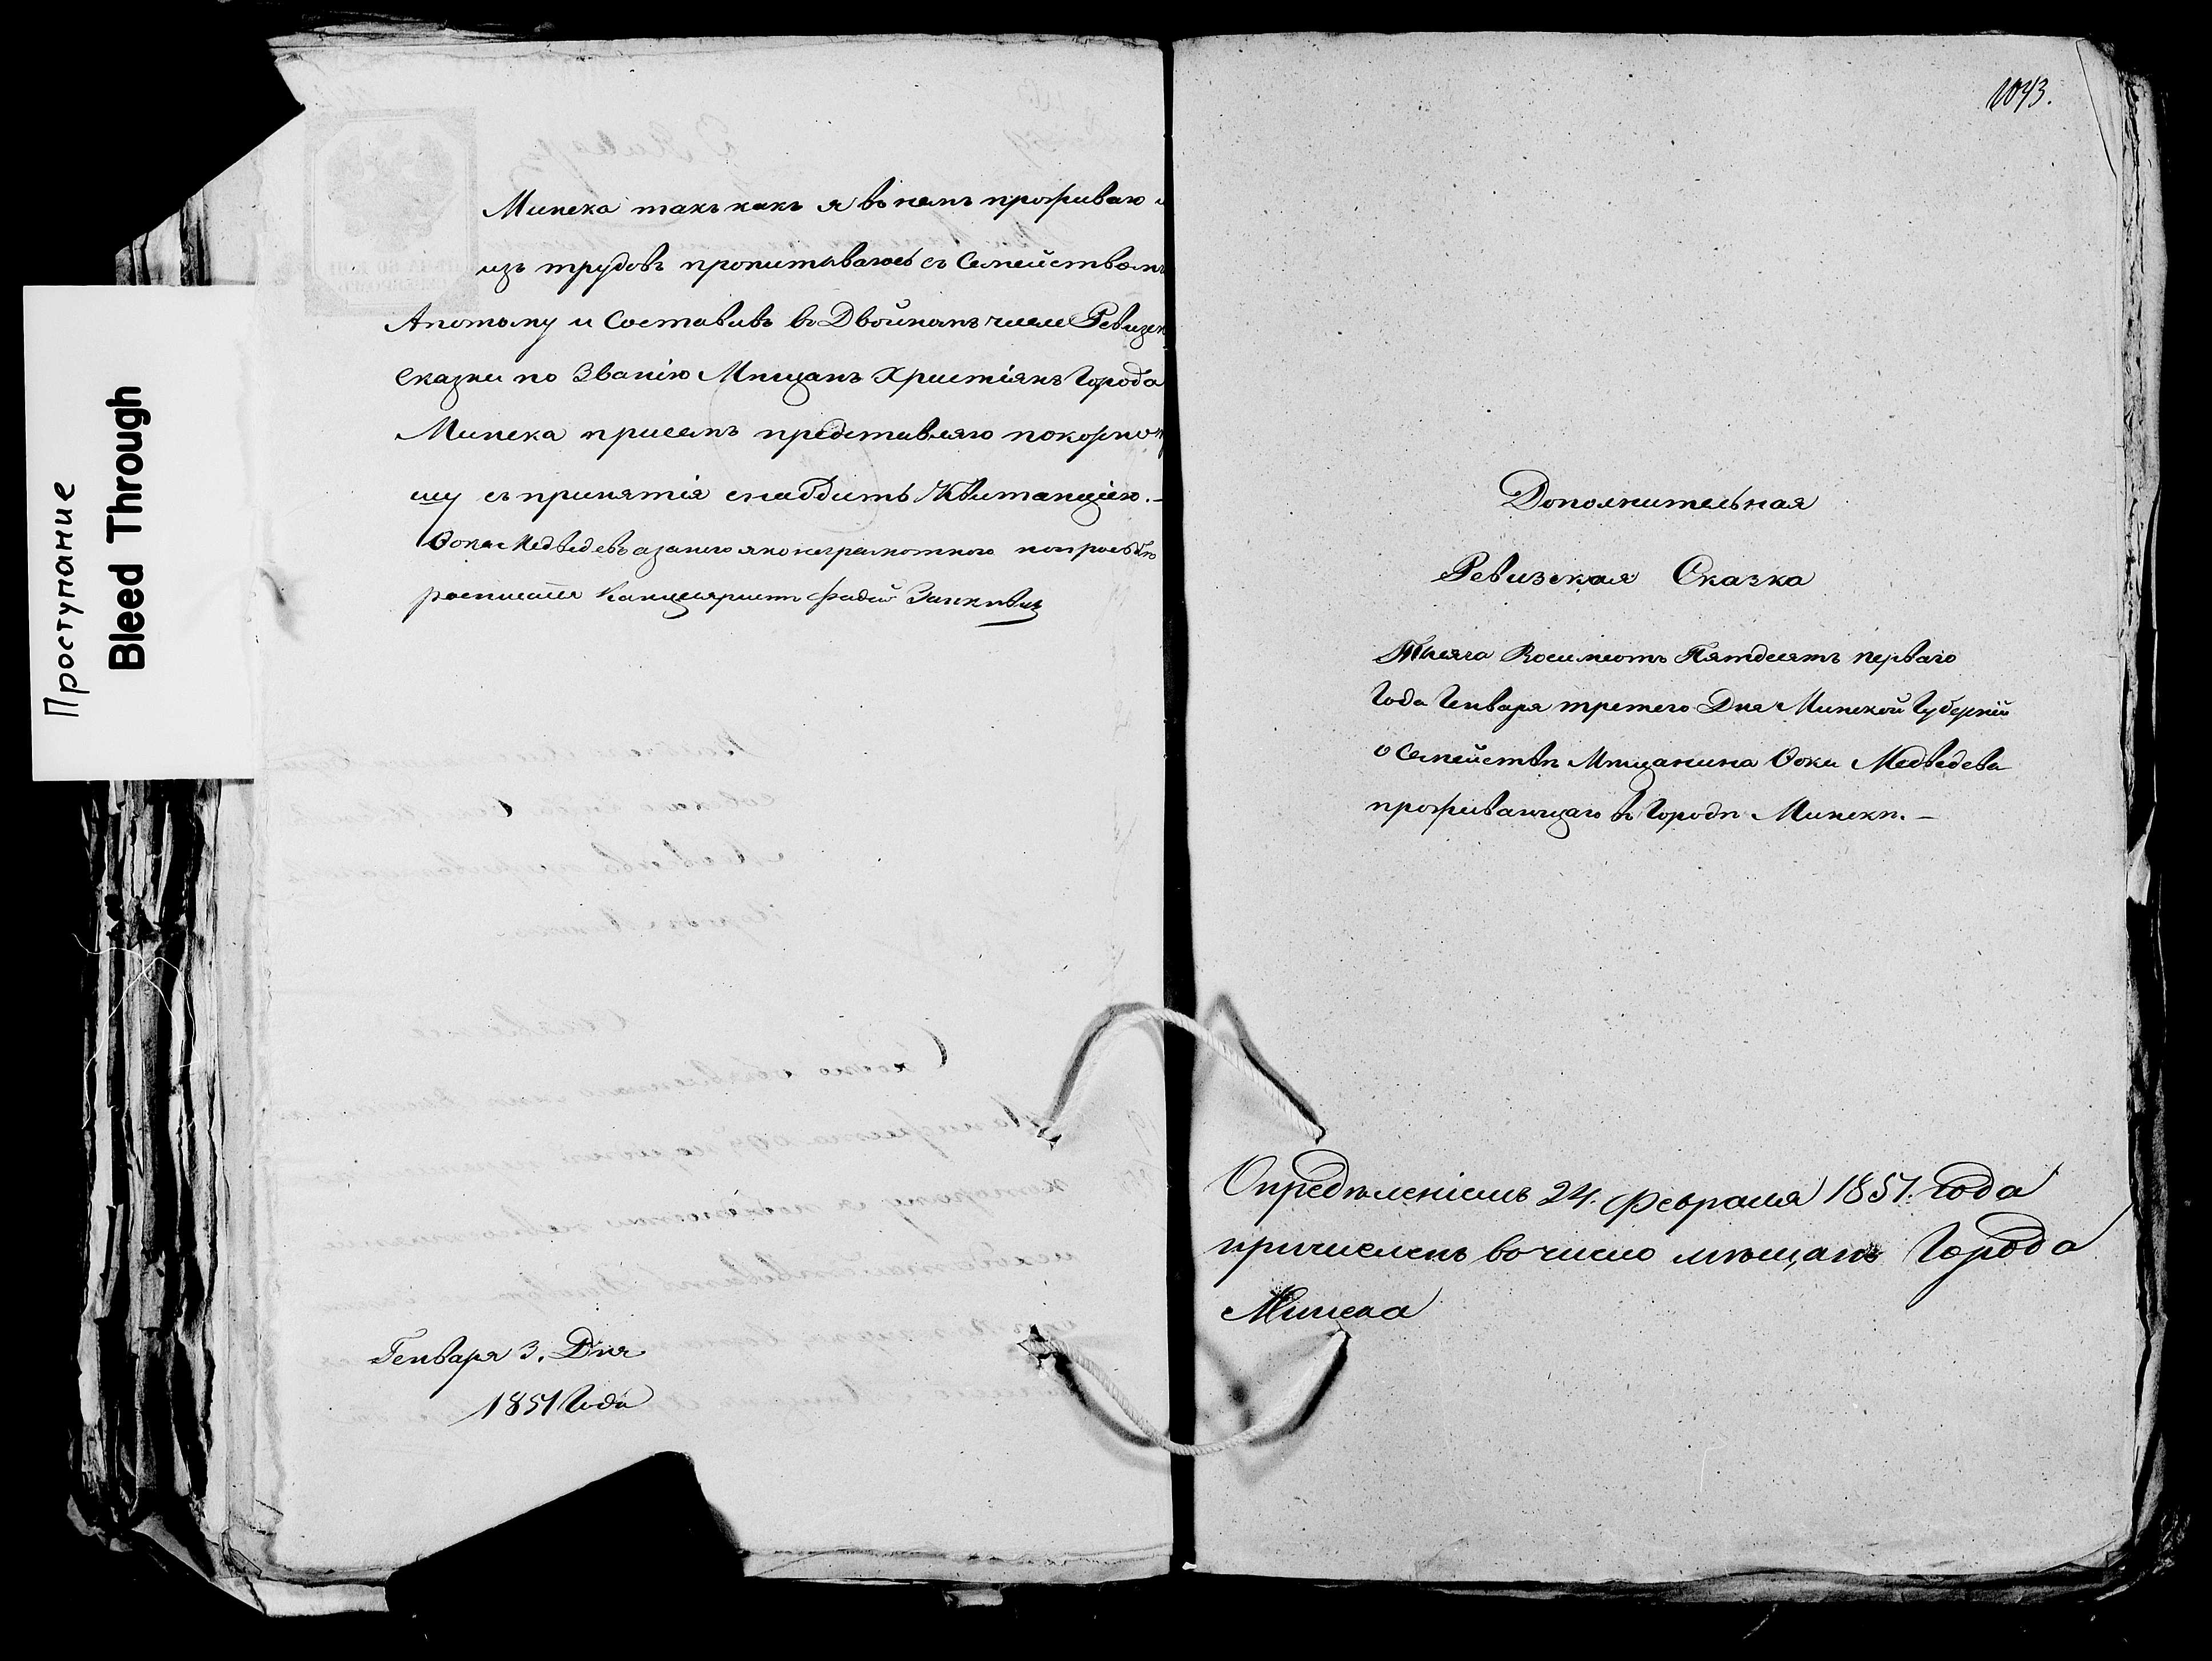 Проступание
Bleed Through
Минска такъ какъ я въ немъ проживаю и
изъ трудовъ пропитываюсь съ Семействомъ
А потому и Составивъ въ Двойномъ числе Ревизск
Сказки по Званію Мѣщанъ Христіянъ Города
Минска присемъ представляю покорно п
шу съ принятія снабдить Квитанціею. —
Ѳока Медвѣдевъ а за него яко неграмотного по прозьбѣ
росписался Канцеляристъ
Генваря 3. Дня
1851 Года
1043.
Дополнительная
Ревизская Сказка
Тысяча Восимсотъ Пятдесятъ перваго
Года Генваря третего Дня Минской Губерніи
о Семействѣ Мѣщанина Ѳоки Медвѣдева
проживающаго въ Городѣ Минскѣ. —
Опредѣленіемъ 24. Февраля 1851. года
причисленъ въ число мѣщанъ Города
Минска